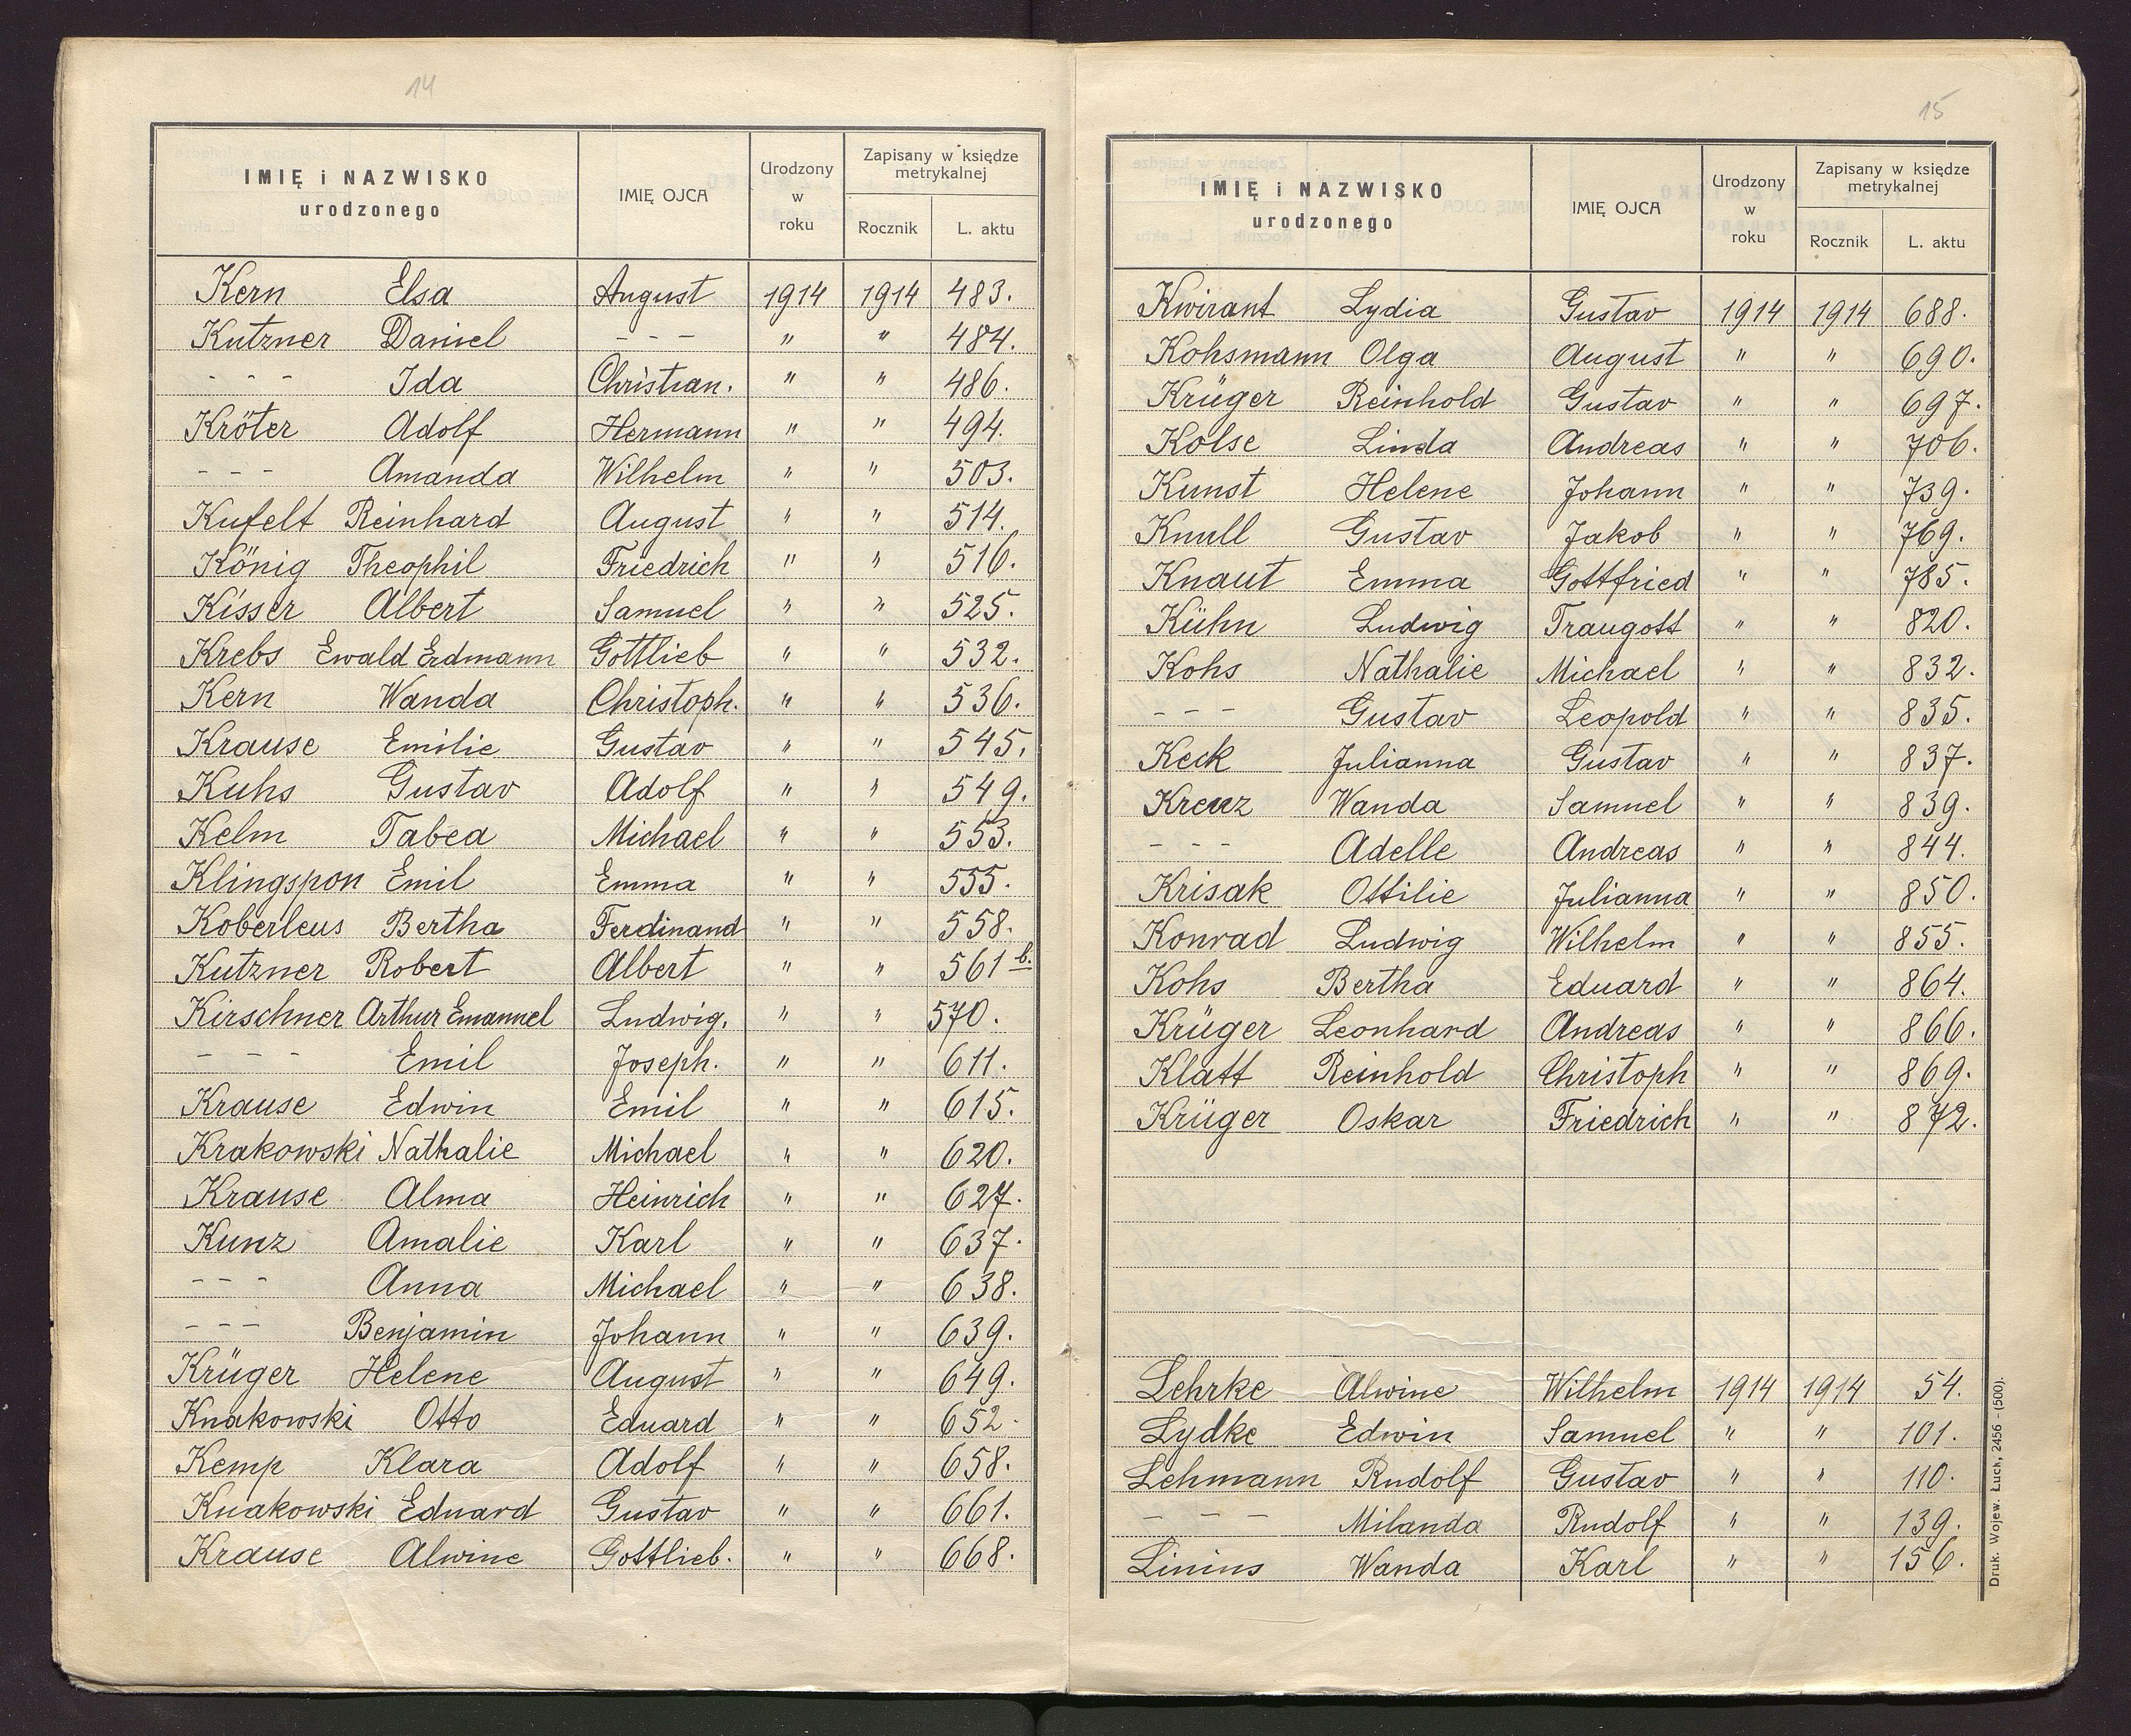 14
IMIĘ i NAZWISKO urodzonego | IMIĘ OJCA | Urodzony w roku | Zapisany w księdze metrykalnej
Rocznik | L. aktu
Kern Elsa August 1914 1914 483.
Kutzner Daniel - - - " " 484.
- - - Ida Christian. " " 486.
Kröter Adolf Hermann " " 494.
- - - Amanda Wilhelm " " 503.
Kufelt Reinhard August " " 514.
König Theophil Friedrich " " 516.
Kisser Albert Samuel " " 525.
Krebs Ewald Erdmann Gottlieb " " 532.
Kern Wanda Christoph. " " 536.
Krause Emilie Gustav " " 545.
Kuhs Gustav Adolf " " 549.
Kelm Tabea Michael " " 553.
Klingspon Emil Emma " " 555.
Koberleus Bertha Ferdinand " " 558.
Kutzner Robert Albert " " 561 b.
Kirschner Arthur Emanuel Ludwig. " " 570.
- - - Emil Joseph. " " 611.
Krause Edwin Emil " " 615.
Krakowski Nathalie Michael " " 620.
Krause Alma Heinrich " " 627.
Kunz Amalie Karl " " 637.
- - - Anna Michael " " 638.
- - - Benjamin Johann " " 639.
Krüger Helene August " " 649.
Knakowski Otto Eduard " " 652.
Kemp Klara Adolf " " 658.
Knakowski Eduard Gustav " " 661.
Krause Alwine Gottlieb. " " 668.
15
IMIĘ i NAZWISKO urodzonego | IMIĘ OJCA | Urodzony w roku | Zapisany w księdze metrykalnej
Rocznik | L. aktu
Kwirant Lydia Gustav 1914 1914 688.
Kohsmann Olga August " " 690.
Krüger Reinhold Gustav " " 697.
Kolse Linda Andreas " " 706.
Kunst Helene Johann " " 739.
Knull Gustav Jakob " " 769.
Knaut Emma Gottfried " " 785.
Kühn Ludwig Traugott " " 820.
Kohs Nathalie Michael " " 832.
- - - Gustav Leopold " " 835.
Keck Julianna Gustav " " 837.
Kreuz Wanda Samuel " " 839.
- - - Adelle Andreas " " 844.
Krisak Ottilie Julianna " " 850.
Konrad Ludwig Wilhelm " " 855.
Kohs Bertha Eduard " " 864.
Krüger Leonhard Andreas " " 866.
Klatt Reinhold Christoph " " 869.
Krüger Oskar Friedrich " " 872.
Lehrke Alwine Wilhelm 1914 1914 54.
Lydke Edwin Samuel " " 101.
Lehmann Rudolf Gustav " " 110.
- - - Milanda Rudolf " " 139.
Linins Wanda Karl " " 156.
Druk. Wojew. Łuck, 2456 – (500).